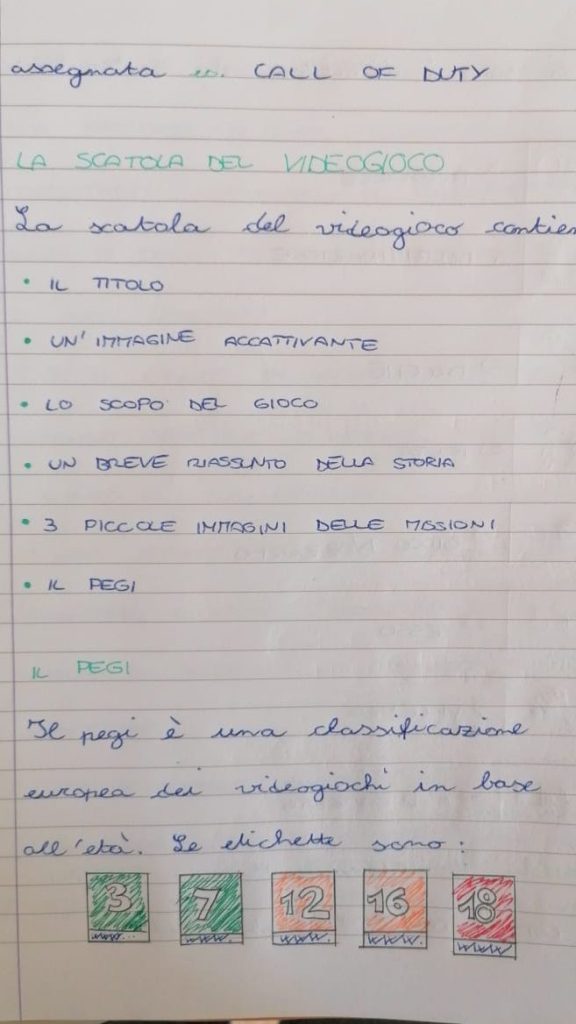 assegnata es. CALL OF DUTY
LA SCATOLA DEL VIDEOGIOCO
La scatola del videogioco contien
• IL TITOLO
• UN'IMMAGINE ACCATTIVANTE
• LO SCOPO DEL GIOCO
• UN BREVE RIASSUNTO DELLA STORIA
• 3 PICCOLE IMMAGINI DELLE MISSIONI
• IL PEGI
IL PEGI
Il pegi è una classificazione
europea dei videogiochi in base
all'età. Le etichette sono:
3 7 12 16 18